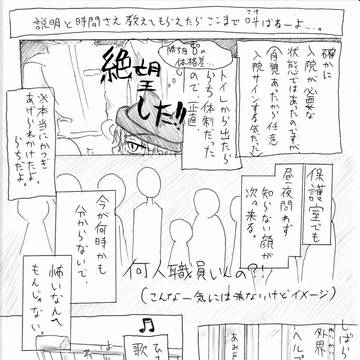 説明と時間さえ教えてもらえたらここまで叫ばねーよ…。
確かに
入院が必要な
状態ではあったのですが
(自覚あったから任意
入院サインする気だった)
トイレから出たら
らち体制だった
ので、正直
体格差…
絶望
した!!
※本当にかつぎ
あげられかけたよ。
らちだよ。
保護室でも
昼夜問わず
知らない顔が
次々来る。
今が何時かも
分からないで、
怖いなんて
もんじゃない。
何人職員いんの?!
(こんな一気には来ないけどイメージ)
しばい
外界
ヘルプ
♫
歌